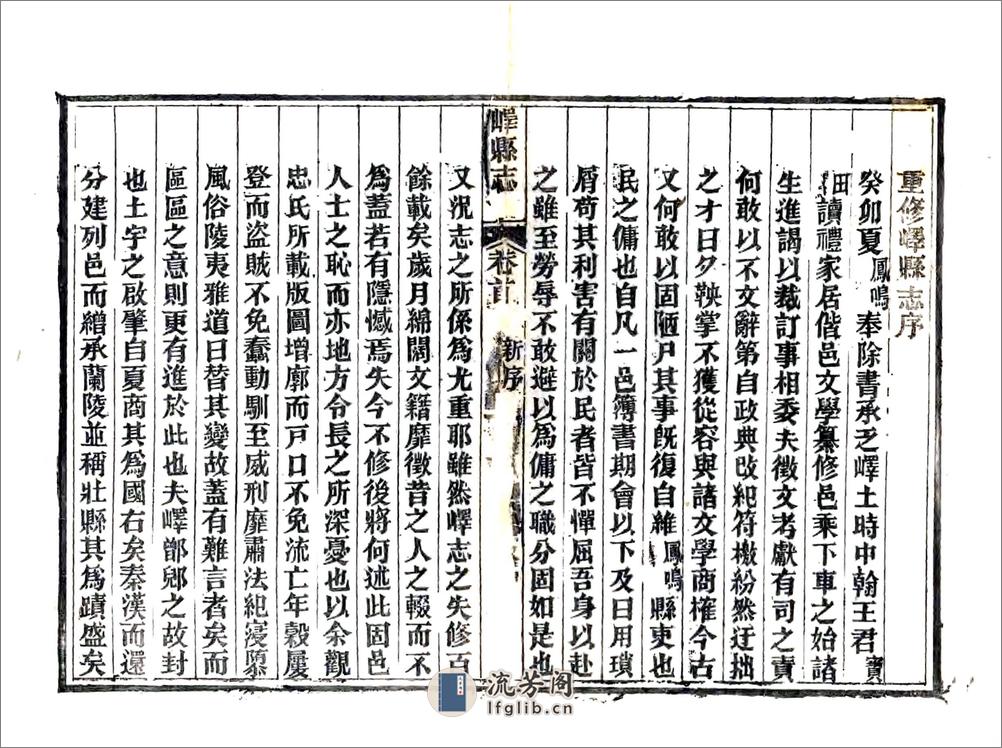 重修嶧縣志序
癸卯夏鳳鳴奉除書承乏嶧土時中翰王君寶
田讀禮家居偕邑文學纂修邑乘下車之始諸
生進謁以裁訂事相委夫徵文考獻有司之責
何敢以不文辭第自政典改紀符檄紛然迂拙
之才日夕鞅掌不獲從容與諸文學商榷今古
又何敢以固陋尸其事旣復自維鳳鳴縣吏也
民之傭也自凡一邑簿書期會以下及日用瑣
屑苟其利害有關於民者皆不憚屈吾身以赴
之雖至勞辱不敢避以爲傭之職分固如是也
嶧縣志
卷首
新序
又況志之所係爲尤重耶雖然嶧志之失修百
餘載矣歲月綿闊文籍靡徵昔之人之輟而不
爲蓋若有隱憾焉失今不修後將何述此固邑
人士之恥而亦地方令長之所深憂也以余觀
忠氏所載版圖增廓而戸口不免流亡年穀屢
登而盜賊不免蠢動馴至威刑靡肅法紀寖隳
風俗陵夷雅道日替其變故蓋有難言者矣而
區區之意則更有進於此也夫嶧鄫郳之故封
也土宇之啟肇自夏商其爲國右矣秦漢而還
分建列邑而繒承蘭陵並稱壯縣其爲蹟盛矣
流芳阁
lfglib.cn